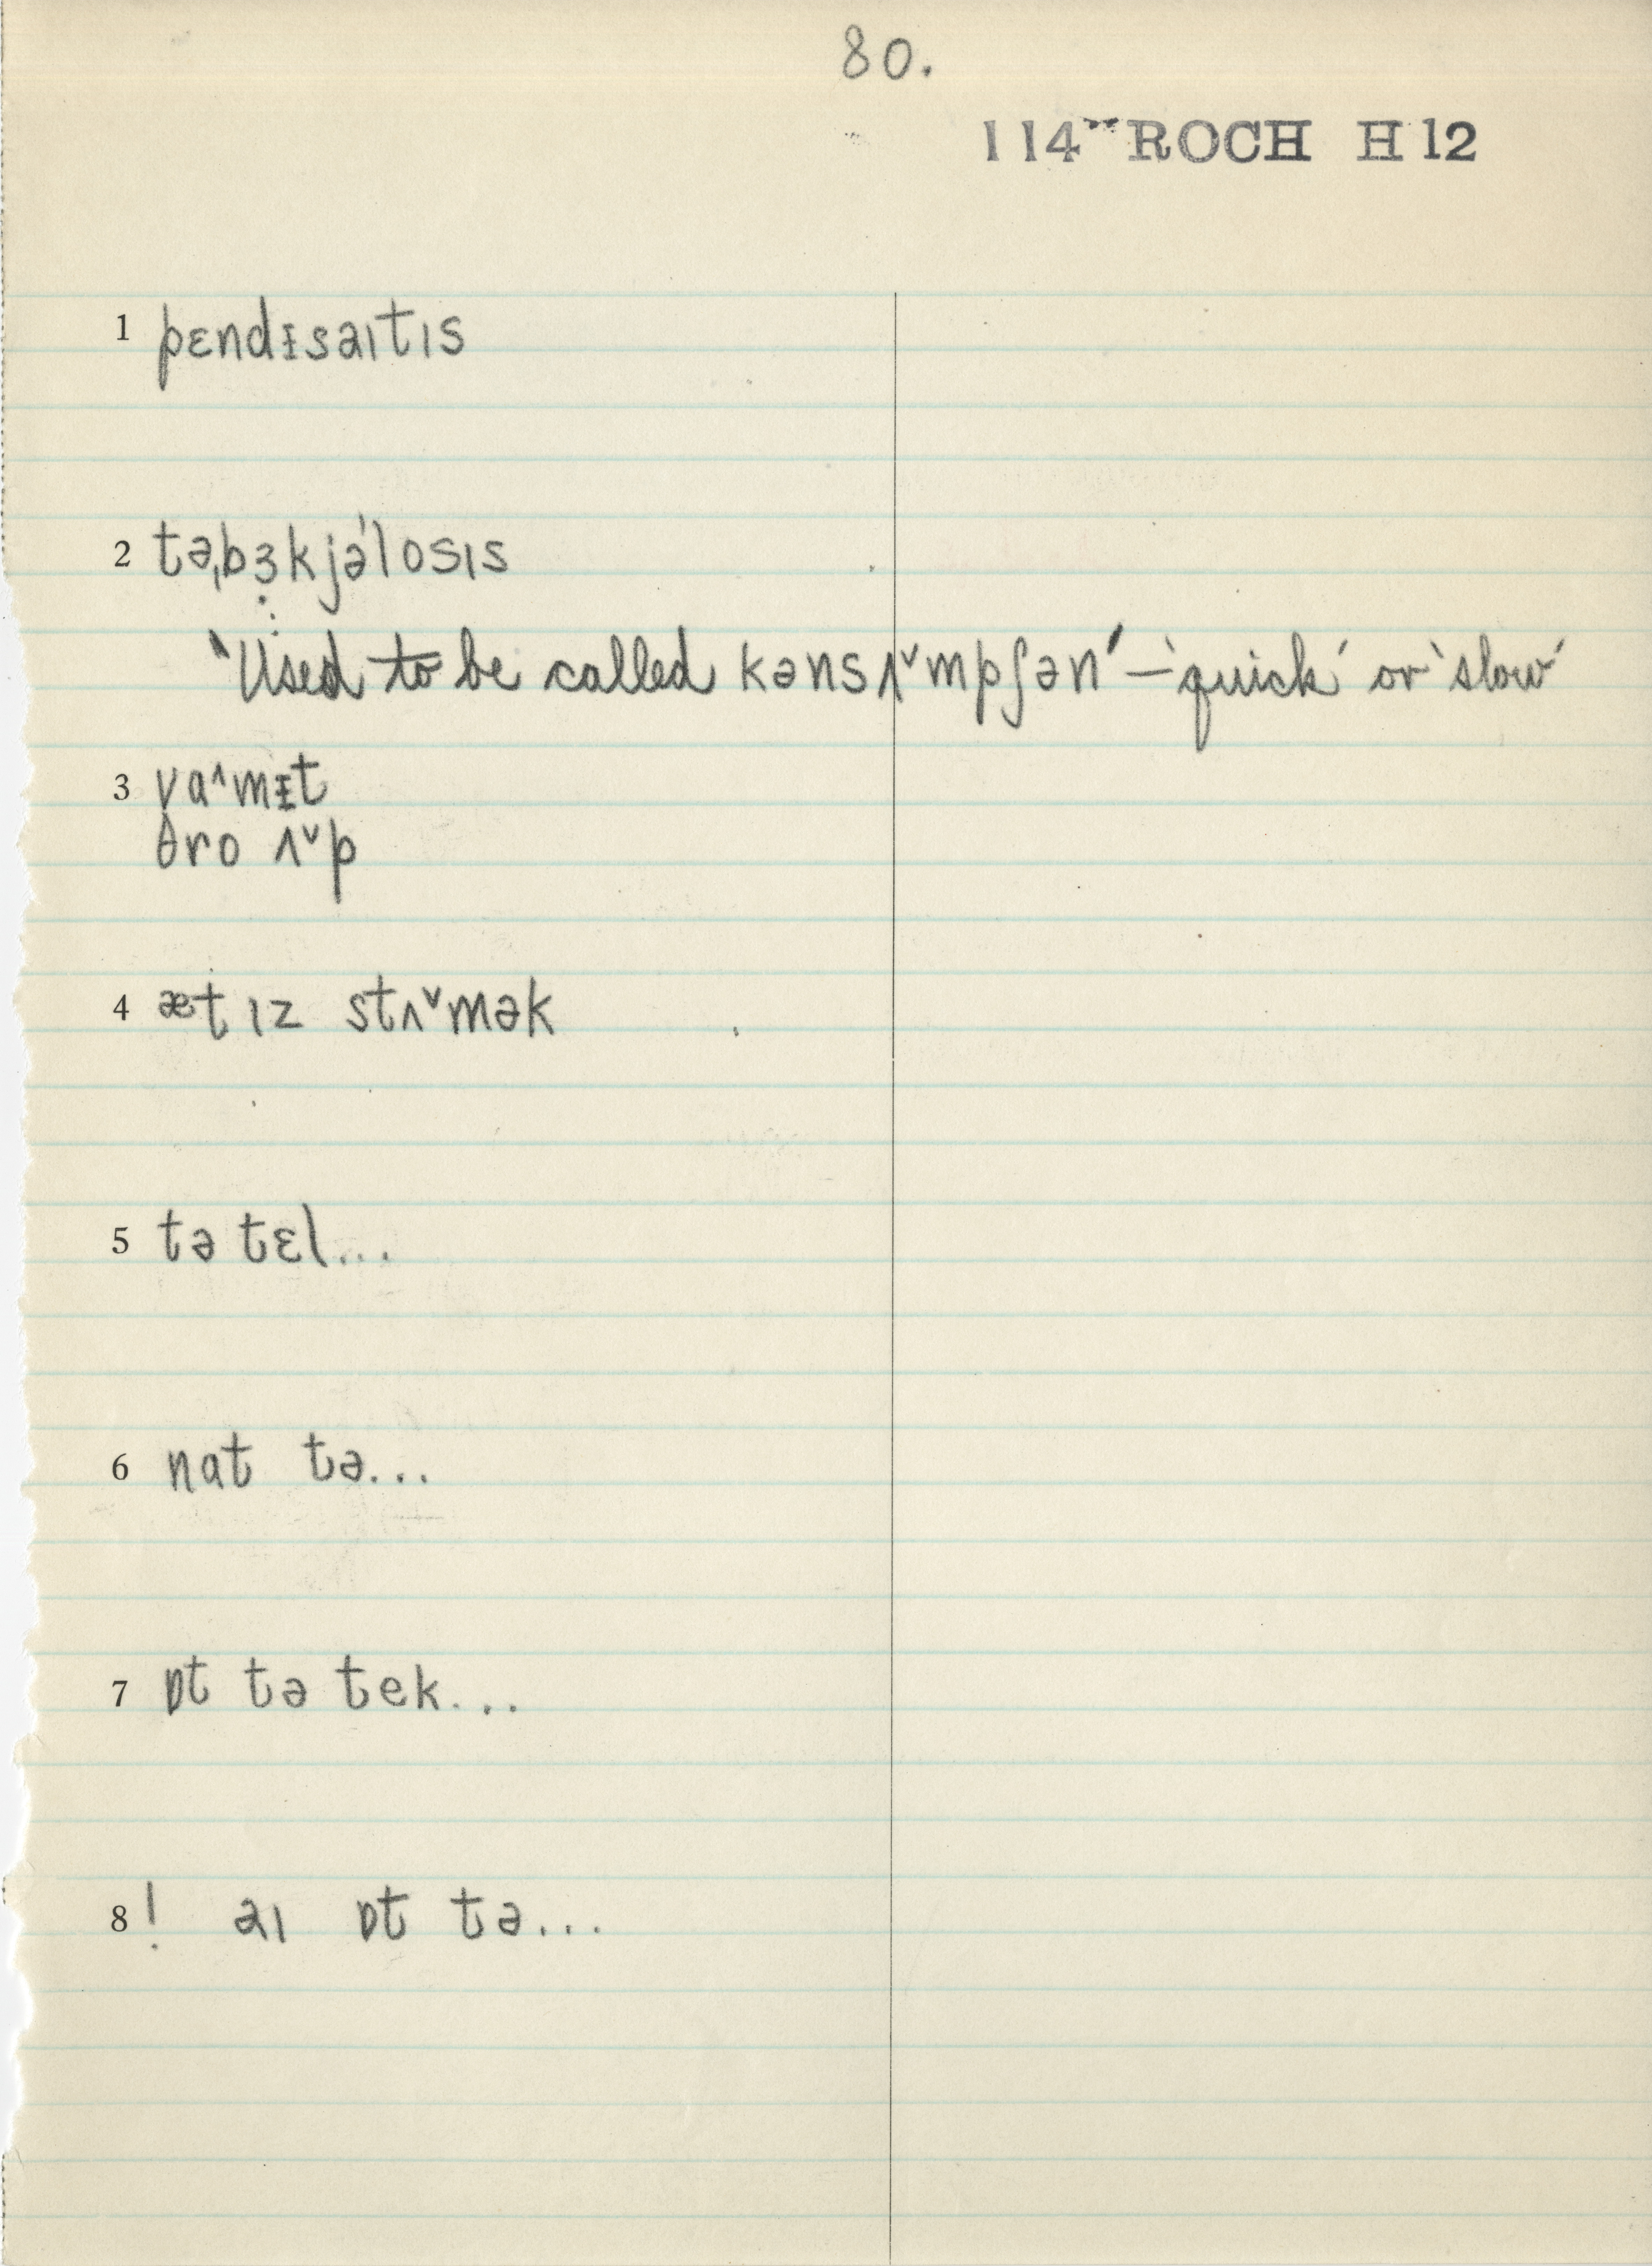 80.
114 ROCH H 12
1 pɛndᵻsaɪtɪs
2 təˌbɜ̣kjəˊlosɪs
‵Used to be called kənsʌ˅mpʃən′ – ‵quick′ or ‵slow′
3 va˄mᵻt
θro ʌ˅p
4 æt ɪz stʌ˅mək
5 tə tɛl...
6 nat tə...
7 ɒt tə tek...
8 ! aɪ ɒt tə...